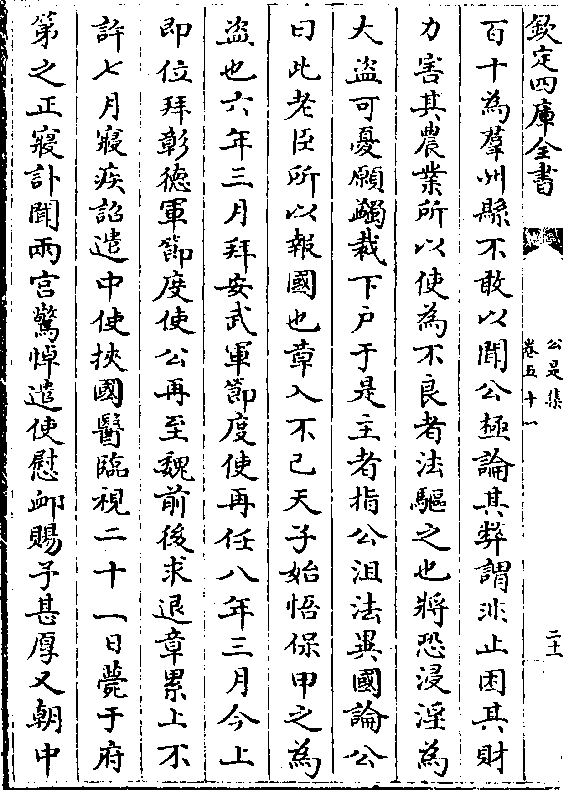 欽定四庫全書
公是集
卷五十一
二十一
百十為羣州縣不敢以聞公極論其弊謂非止困其財
力害其農業所以使為不良者法驅之也將恐浸淫為
大盜可憂願蠲裁下户于是主者指公沮法異國論公
曰此老臣所以報國也章入不已天子始悟保甲之為
盜也六年三月拜安武軍節度使再任八年三月今上
即位拜彰德軍節度使公再至魏前後求退章累上不
許七月寢疾詔遣中使挾國醫臨視二十一日薨于府
第之正寢訃聞兩宫驚悼遣使慰䘏賜予甚厚又朝中